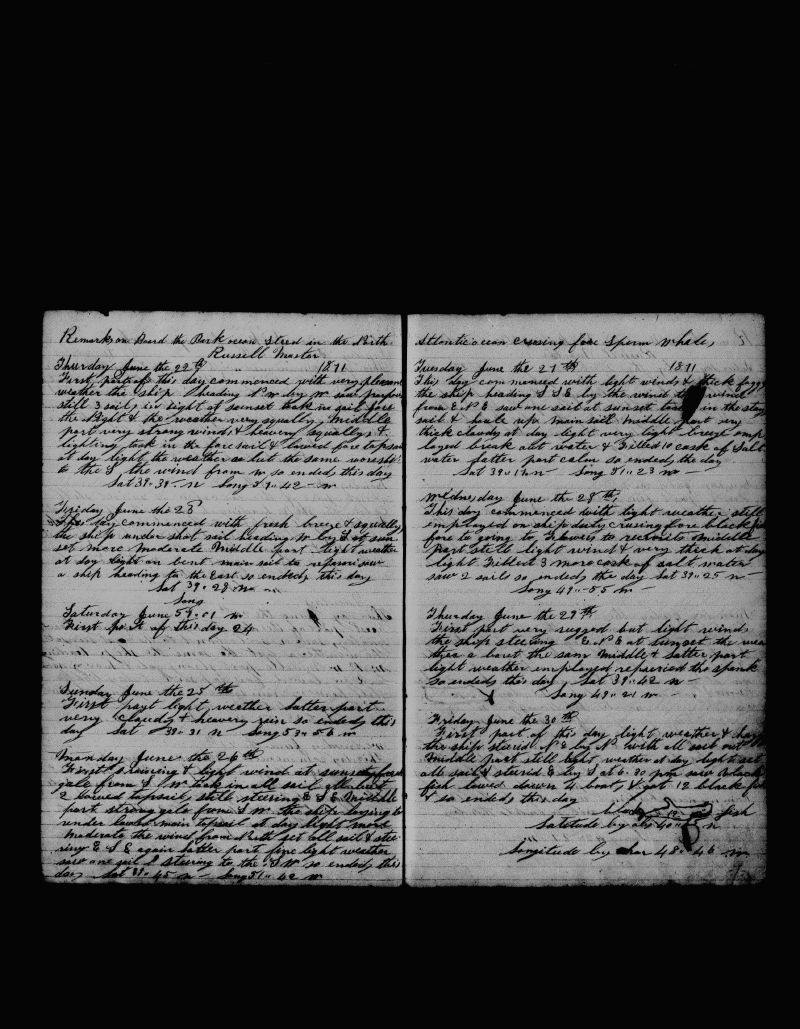 Remarks on Board the Bark ocean Steed in the North
Russell Master
Thursday June the 22th " 1871
First part of this day commenced with very pleasant
weather the ship heading N W by W saw
still 3 sails in sight at sunset took in sail fore
the Night & the weather very squally, Middle
part very strong winds & heavery squallys &
lighting took in the fore sail & lowed fore topsail
at day light the weather a but the same
to the S the wind from W so ended this day
Lat 39.. 39.. N Long 59.. 42 W
Friday June the 23
This day commenced with fresh breze & squally
the ship under shot sail heading W by S at sun
set more moderate Middle part light weather
at day light on bent main sail to repair saw
a ship heading to the East so ended this day
Lat 39.. 28 N
Long
Saturday June 59.. 01 W
First part of this day 24
Sunday June the 25 th
First part light weather latter part
very cloudy & heavery rain so ended this
day Lat 39.. 31 N Long 53.. 56 W
Monday June the 26 th
First & light wind at sunset fresh
gale from S W took in all sail
2 lowed topsail still steering E S E Middle
part strong gale from S W. the ship laying to
under lowed main topsail at day light more
moderate the wind from North set all sail & stee
ring E S E again latter part fine light weather
saw one sail steering to the S W so ended this
day Lat 39.. 45 N Long 51.. 42 W
Atlantic ocean crusing fore Sperm Whale,
Tuesday June the 27 th 1871
This day commenced with light winds & thick foggy
the ship heading S S E by the wind wind
from E N E saw one sail at sunset took in the stay
sail & hault up main sail Middle part very
thick cloudy at day light very light breeze emp
loyed break out water & filled 10 cask of Salt
water latter part calm so ended the day
Lat 39.. 17 N Long 51.. 23 W
Wednesday June the 28 th,
This day commenced with light weather still
employed on ship duty crusing fore black fish
fore to going to Flowers to recruits Middle
part still light wind & very thick at day
light Filled 3 more cask of salt water
saw 2 sails so ended the day Lat 39.. 25 N
Long 49.. 55 W
Thursday June the 29 th
First part very rugged but light wind
the ship steering E N E at sunset the wea
ther a bout the sam Middle & latter part
light weather employed repairied the spank
so ended this day Lat 39.. 42 N
Long 49.. 21 W
Friday June the 30 th
First part of this day light weather &
the ship sterid N E by N with all sail out
Middle part still light weather at day light set
all sail & sterid E by S at 6.30 pm saw black
fish lowed down 4 boat, & got 12 black fish
& so ended this day
black 12 fish
Latitude by obs 40 N
Longitude by char 48.. 46 W